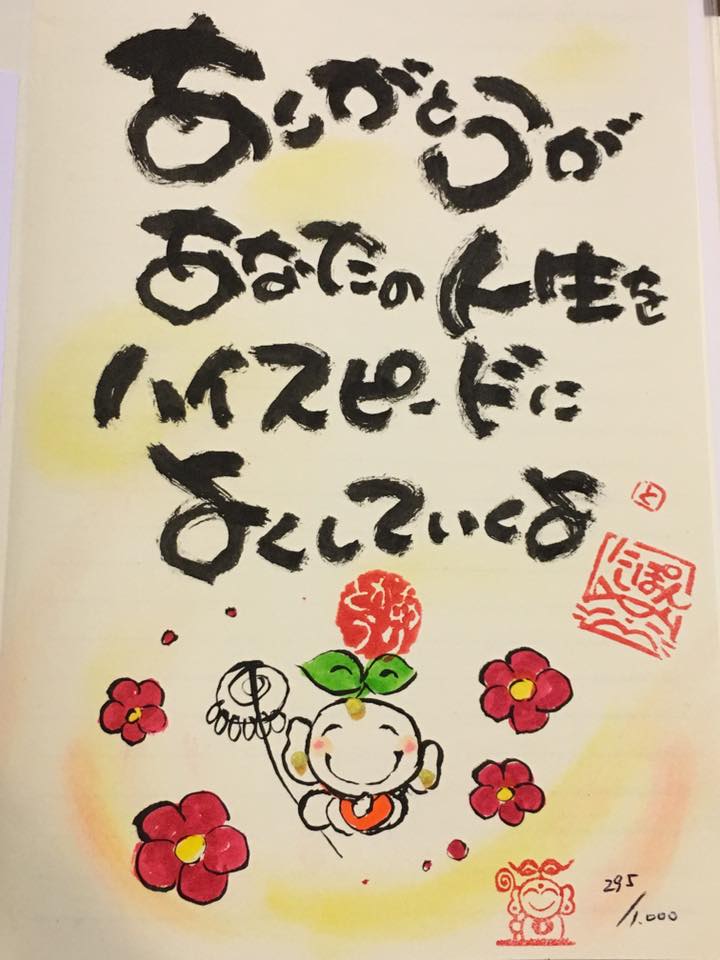 ありがとうが
あなたの人生を
ハイスピードに
よくしていくよ
と
にっぽん
295
/1.000